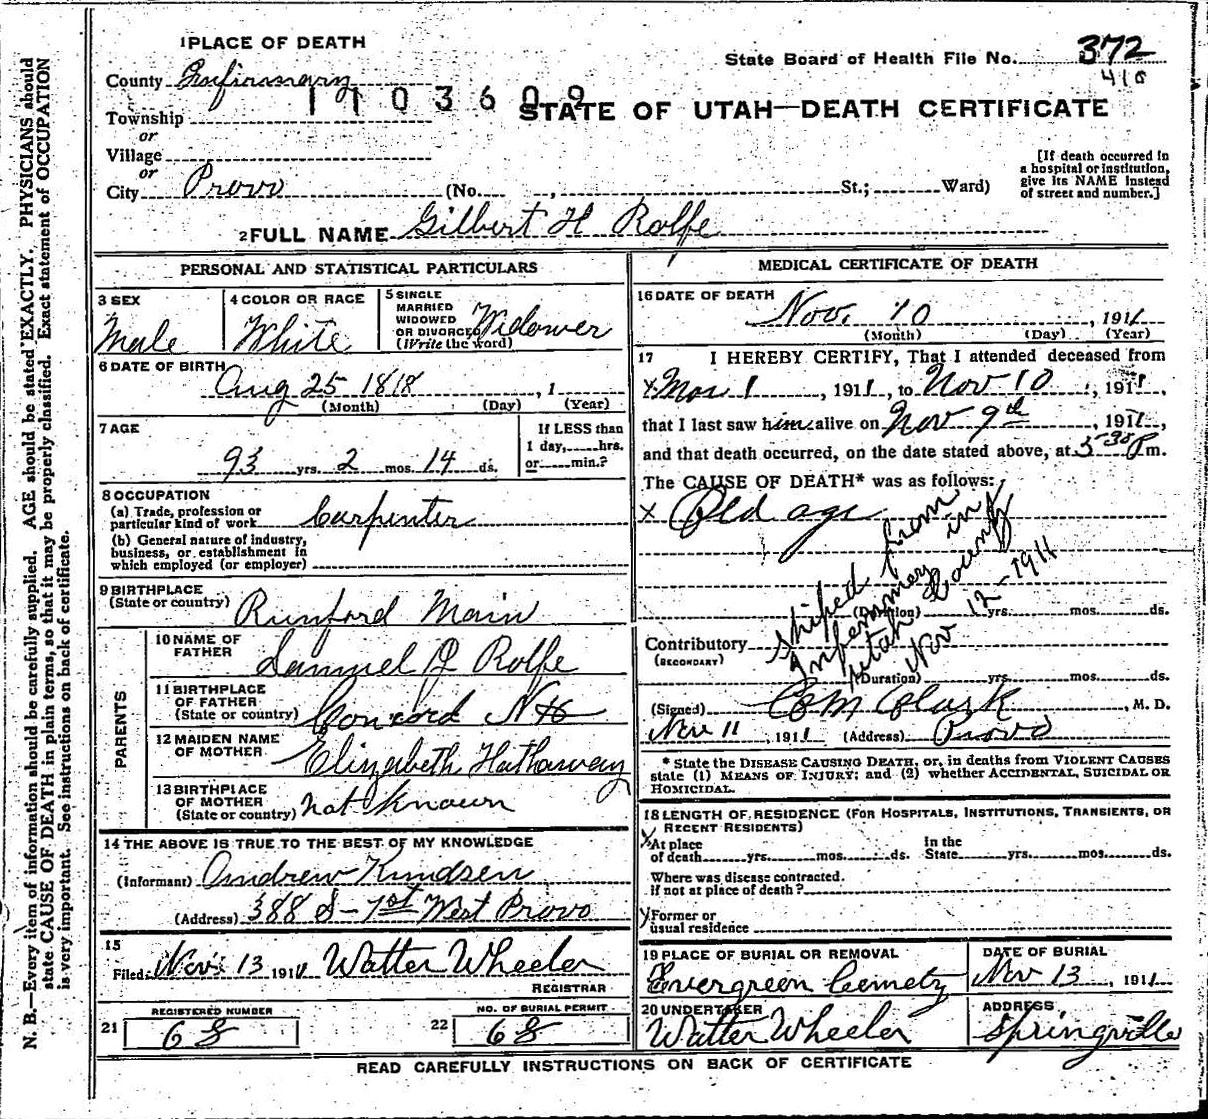 1 PLACE OF DEATH
State Board of Health File No. 372
410
County Infirmary
1103609
STATE OF UTAH—DEATH CERTIFICATE
Township
or
Village
or
City Provo (No. , St.; Ward)
[If death occurred in
a hospital or institution,
give its NAME instead
of street and number.]
2 FULL NAME Gilbert H Rolfe
PERSONAL AND STATISTICAL PARTICULARS
3 SEX
Male
4 COLOR OR RACE
White
5 SINGLE
MARRIED
WIDOWED
OR DIVORCED
(Write the word)
Widower
6 DATE OF BIRTH
Aug 25 1818 , 1
(Month) (Day) (Year)
7 AGE
93 yrs. 2 mos. 14 ds.
If LESS than
1 day, hrs.
or min.?
8 OCCUPATION
(a) Trade, profession or
particular kind of work Carpenter
(b) General nature of industry,
business, or establishment in
which employed (or employer)
9 BIRTHPLACE
(State or country) Runford Main
PARENTS
10 NAME OF
FATHER
Samuel J Rolfe
11 BIRTHPLACE
OF FATHER
(State or country) Concord N H
12 MAIDEN NAME
OF MOTHER
Elizabeth Hathaway
13 BIRTHPLACE
OF MOTHER
(State or country) not known
14 THE ABOVE IS TRUE TO THE BEST OF MY KNOWLEDGE
(Informant) Andrew Knudsen
(Address) 388 S - 7st West Provo
15
Filed Nov 13 1911 Walter Wheeler
REGISTRAR
21 REGISTERED NUMBER
68
22 NO. OF BURIAL PERMIT
68
MEDICAL CERTIFICATE OF DEATH
16 DATE OF DEATH
Nov. 10 , 1911
(Month) (Day) (Year)
17 I HEREBY CERTIFY, That I attended deceased from
x 1 , 1911, to Nov 10 , 1911,
that I last saw him alive on Nov 9th , 1911,
and that death occurred, on the date stated above, at 5-30 P m.
The CAUSE OF DEATH* was as follows:
x Old age
(Duration) yrs. mos. ds.
Contributory
(SECONDARY)
(Duration) yrs. mos. ds.
shiped from
Infermrey in
Utah County
Nov 12-1911
(Signed) M Clark , M. D.
Nov 11 , 1911 (Address) Provo
* State the DISEASE CAUSING DEATH, or, in deaths from VIOLENT CAUSES
state (1) MEANS OF INJURY; and (2) whether ACCIDENTAL, SUICIDAL OR
HOMICIDAL.
18 LENGTH OF RESIDENCE (FOR HOSPITALS, INSTITUTIONS, TRANSIENTS, OR
RECENT RESIDENTS)
At place
of death yrs. mos. ds.
In the
State yrs. mos. ds.
Where was disease contracted.
If not at place of death?
Former or
usual residence
19 PLACE OF BURIAL OR REMOVAL
Evergreen Cemety
DATE OF BURIAL
Nov 13 , 1911
20 UNDERTAKER
Walter Wheeler
ADDRESS
Springville
READ CAREFULLY INSTRUCTIONS ON BACK OF CERTIFICATE
N. B.—Every item of information should be carefully supplied. AGE should be stated EXACTLY. PHYSICIANS should
state CAUSE OF DEATH in plain terms, so that it may be properly classified. Exact statement of OCCUPATION
is very important. See instructions on back of certificate.